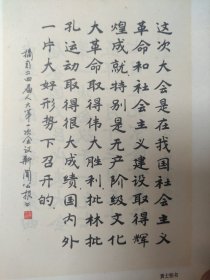 这次大会是在我国社会主义
革命和社会主义建设取得辉
煌成就特别是无产阶级文化
大革命取得伟大胜利批林批
孔运动取得很大成绩国内外
一片大好形势下召开的
摘自《四届人大第一次会议新闻公报》